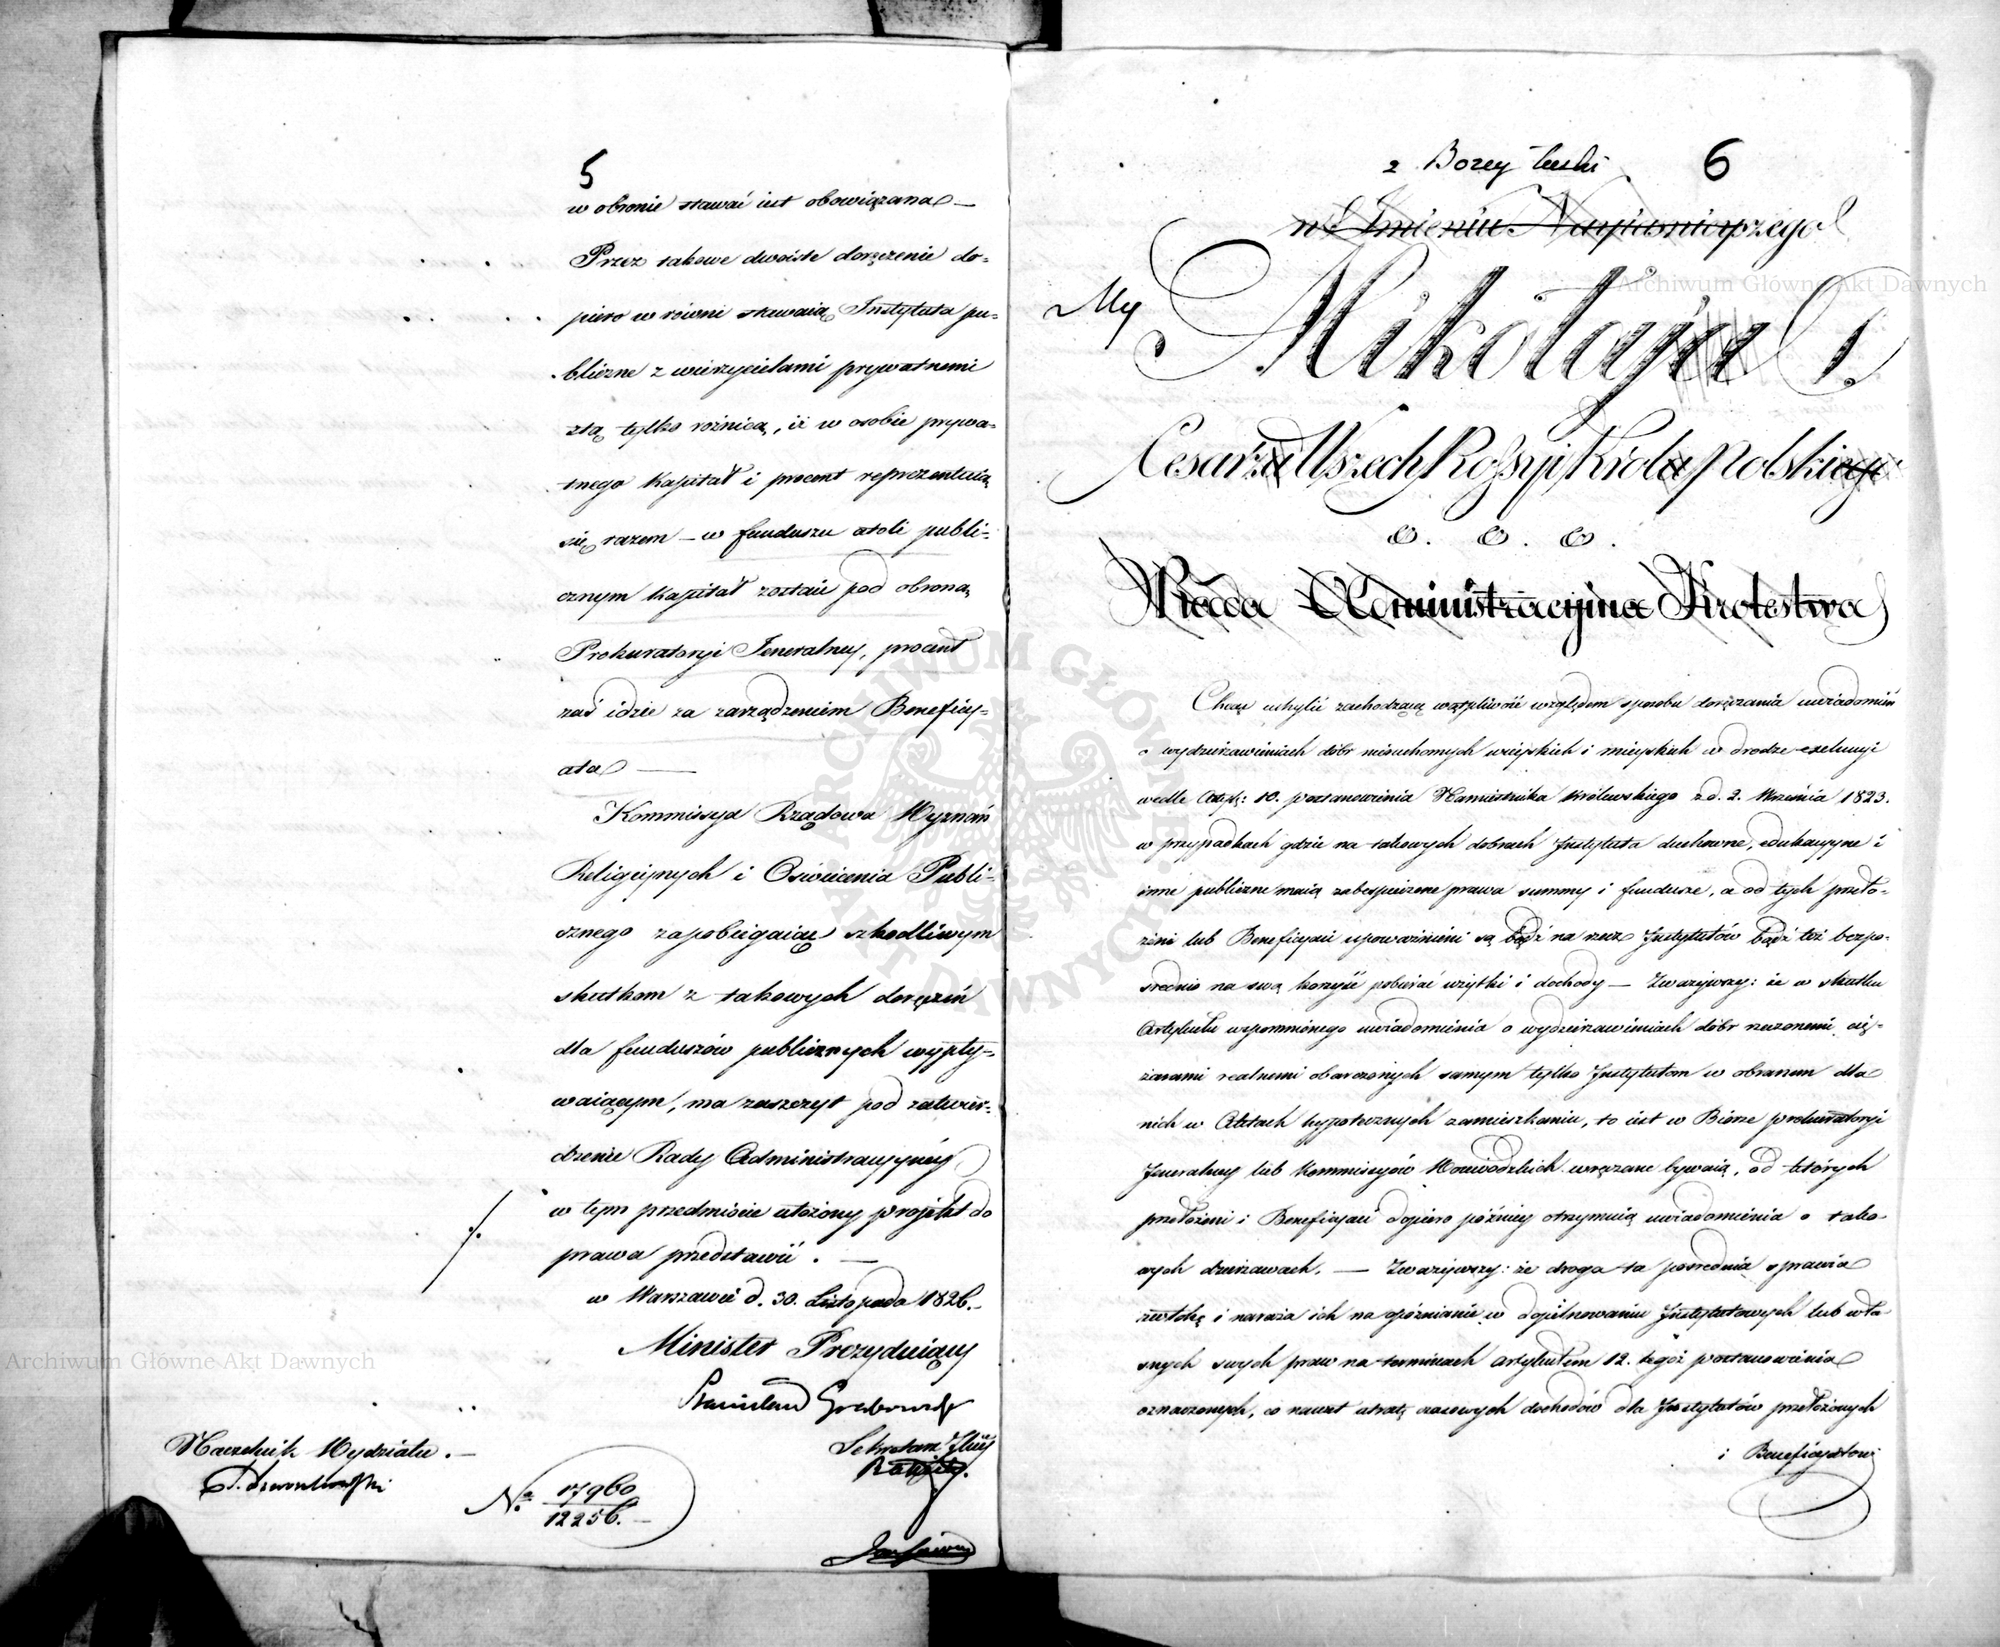 5
w obronie stawać iest obowiązana —
Przez takowe dwoiste doręczenie do=
piero w równi stawaią Instytuta pu=
bliczne z wierzycielami prywatnemi
z tą tylko różnicą, iż w osobie prywa=
tnego Kapitał i procent reprezentuią
się razem — w funduszu atoli publi=
cznym Kapitał zostaie pod obroną
Prokuratoryi Jeneralney, procent
zaś idzie za zarządzeniem Beneficy=
ata —
Kommissya Rządowa Wyznań
Religiynych i Oświecenia Publi=
cznego zapobiegaiąc szkodliwym
skutkom z takowych doręczeń
dla funduszów publicznych wypły=
waiącym, ma zaszczyt pod zatwier=
dzenie Rady Administracyiney
w tym przedmiocie ułożony projekt do
prawa przedstawić. —
w Warszawie d. 30. Listopada 1826. —
Minister Prezyduiący
Stanisław Grabowski
Sekretarz Jlny
Naczelnik Wydziału. —
No. 17960
12256. —
6
z Bożey łaski
w Imieniu Nayiaśnieyszego
My Mikołaja I.
Cesarza Wszech Rossyi Króla Polskiego
&. &. &.
Rada Administracyina Królestwa
Chcąc uchylić zachodzącą wątpliwość względem sposobu doręczania uwiadomień
o wydzierżawieniach dóbr nieruchomych wieyskich i mieyskich w drodze exekucyi
wedle Artykł: 10. postanowienia Namiestnika Królewskiego z d. 2. Września 1823.
w przypadkach gdzie na takowych dobrach Instytuta duchowne, edukacyine i
inne publiczne maią zabespieczone prawa summy i fundusze, a od tych przeło=
żeni lub Beneficyaci upoważnieni są bądź na rzecz Instytutów bądź też bezpo=
średnio na swą korzyść pobierać użytki i dochody — Zważywszy: że w skutku
Artykułu wspomnionego uwiadomienia o wydzierżawieniach dóbr rzeczonemi cię=
żarami realnemi obarczonych samym tylko Instytutom w obranem dla
nich w Aktach hypotecznych zamieszkaniu, to iest w Biórze prokuratoryi
Jeneralney lub Kommissyów Woiewódzkich wręczane bywaią, od których
przełożeni i Beneficyaci dopiero późniey otrzymuią uwiadomienia o tako=
wych dzierżawach. — Zważywszy: że droga ta pośrednia sprawia
zwłokę i naraża ich na opóźnianie w dopilnowaniu Instytutowych lub wła=
snych swych praw na terminach artykułem 12. tegoż postanowienia
oznaczonych, co nawet utratę czasowych dochodów dla Instytutów przełożonych
i Beneficyatów
Archiwum Główne Akt Dawnych
Archiwum Główne Akt Dawnych
ARCHIWUM GŁÓWNE AKT DAWNYCH